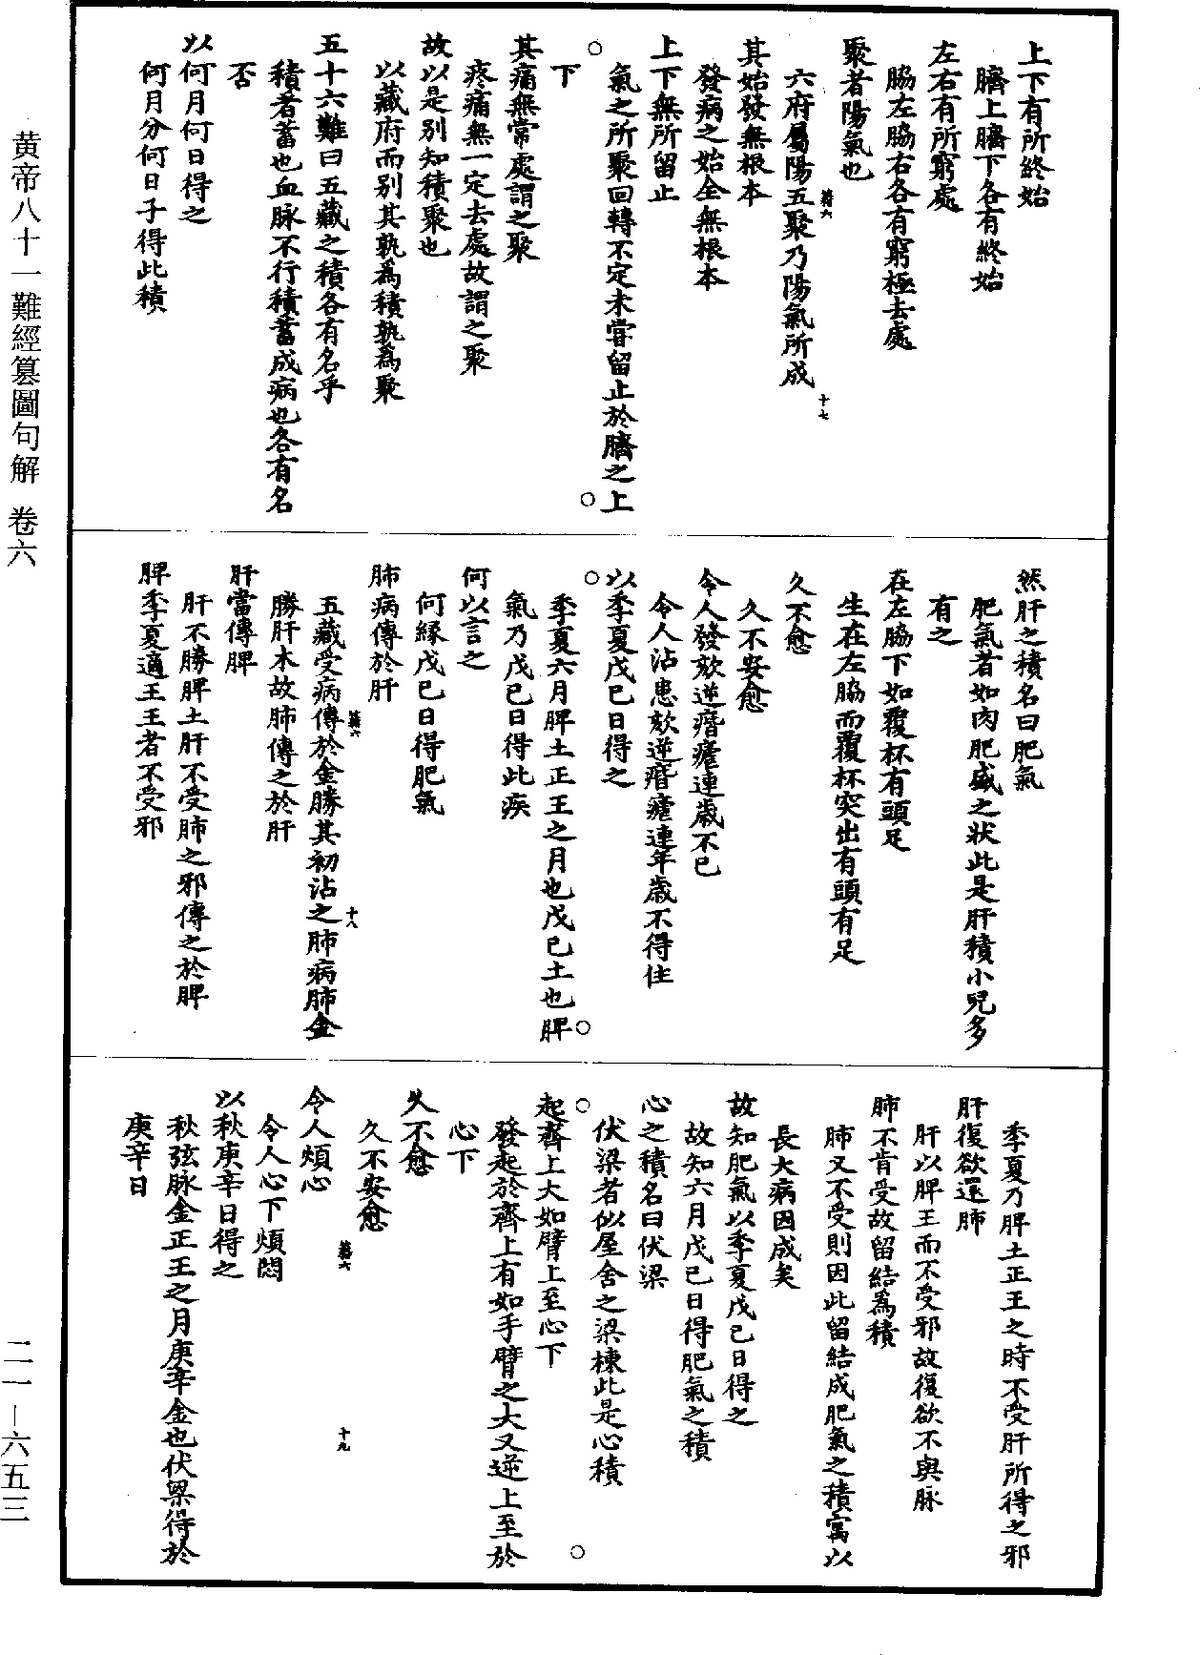 上下有所終始
臍上臍下各有終始
左右有所窮處
脇左脇右各有窮極去處
聚者陽氣也
六府屬陽五聚乃陽氣所成
籍六
十七
其始發無根本
發病之始全無根本
上下無所留止
氣之所聚回轉不定未嘗留止於臍之上
下
其痛無常處謂之聚
疼痛無一定去處故謂之聚
故以是別知積聚也
以藏府而別其孰為積孰為聚
五十六難曰五藏之積各有名乎
積者蓄也血脉不行積蓄成病也各有名
否
以何月何日得之
何月分何日子得此積
然肝之積名曰肥氣
肥氣者如肉肥盛之狀此是肝積小兒多
有之
在左脇下如覆杯有頭足
生在左脇而覆杯突出有頭有足
久不愈
久不安愈
令人發欬逆痻瘧連歲不已
令人沾患欬逆痻瘧連年歲不得住
以季夏戊巳日得之
季夏六月脾土正王之月也戊巳土也脾
氣乃戊巳日得此疾
何以言之
何緣戊巳日得肥氣
肺病傳於肝
籍六
十八
五藏受病傳於金勝其初沾之肺病肺金
勝肝木故肺傳之於肝
肝當傳脾
肝不勝脾土肝不受肺之邪傳之於脾
脾季夏適王王者不受邪
季夏乃脾土正王之時不受肝所得之邪
肝復欲還肺
肝以脾王而不受邪故復欲不與脉
肺不肯受故留結為積
肺又不受則因此留結成肥氣之積寓以
長大病因成矣
故知肥氣以季夏戊巳日得之
故知六月戊巳日得肥氣之積
心之積名曰伏梁
伏梁者似屋舍之梁棟此是心積
起齊上大如臂上至心下
發起於齊上有如手臂之大又逆上至於
心下
久不愈
久不安愈
令人煩心
籍六
十九
令人心下煩悶
以秋庚辛日得之
秋弦脉金正王之月庚辛金也伏梁得於
庚辛日
黄帝八十一難經篡圖句解 卷六
二一—六五三